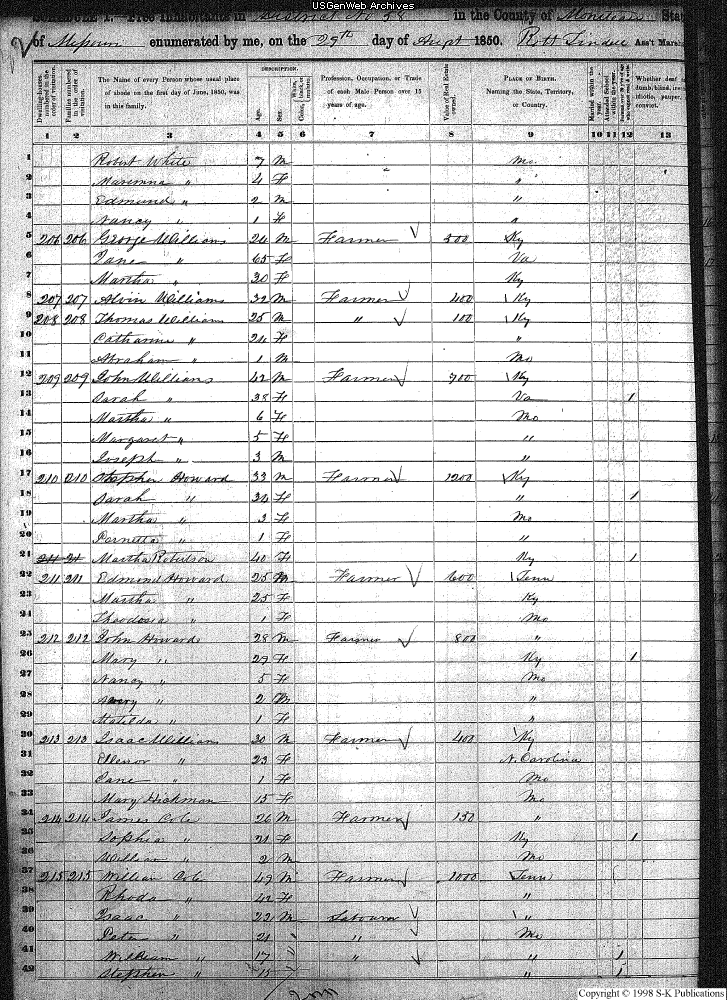 USGenWeb Archives
1. Free Inhabitants in District No 38 in the County of State
of enumerated by me, on the 29th day of 1850. Ass't Marsh
DESCRIPTION.
Dwelling-houses numbered in the order of visitation.
Families numbered in the order of visitation.
The Name of every Person whose usual place of abode on the first day of June, 1850, was in this family.
Age.
Sex.
Color,
Profession, Occupation, or Trade of each Male Person over 15 years of age.
Value of Real Estate owned.
PLACE OF BIRTH. Naming the State, Territory, or Country.
Married within the year.
Attended School within the year.
Whether deaf & dumb, blind, idiotic, pauper, convict.
1 2 3 4 5 6 7 8 9 10 11 12 13
1 Robert White 7 M Mo
2 " 4 F "
3 Edmund " 2 M "
4 Nancy " 1 F "
5 206 206 George Williams M Farmer 500 Ky
6 Jane " 65 F Va
7 Martha " 30 F Ky
8 207 207 Alvin Williams 32 M Farmer 400 Ky
9 208 208 Thomas Williams 25 M " 100 Ky
10 Catharine " 24 F "
11 Abraham " 1 M Mo
12 209 209 John Williams 42 M Farmer 700 Ky
13 Sarah " 38 F Va 1
14 Martha " 6 F Mo
15 Margaret " 5 F "
16 Joseph " 3 M "
17 210 210 Stephen Howard 33 M Farmer 1200 Ky
18 Sarah " 34 F " 1
19 Martha " 3 F Mo
20 " 1 F "
21 Martha Robertson 40 F Ky 1
22 211 211 Edmond Howard 25 M Farmer 600 Tenn
23 Martha " 25 F Ky
24 Theodosia " 1 F Mo
25 212 212 John Howard 28 M Farmer 800 "
26 Mary " 27 F Ky 1
27 Nancy " 5 F Mo
28 " 2 M "
29 Matilda " 1 F "
30 213 213 Isaac Williams 30 M Farmer 400 Ky
31 " 23 F N. Carolina
32 Jane " 1 F Mo
33 Mary Hickman 15 F Mo
34 214 214 James Cole 26 M Farmer 150 "
35 Sophia " 21 F Ky 1
36 William " 2 M Mo
37 215 215 William Cole 49 M Farmer 1000 Tenn
38 Rhoda " 42 F "
39 Isaac " 22 M Labourer "
40 Peter " 21 " " Mo
41 William " 17 " " " 1
42 Stephen " 15 " " 1
Copyright © 1998 S-K Publications